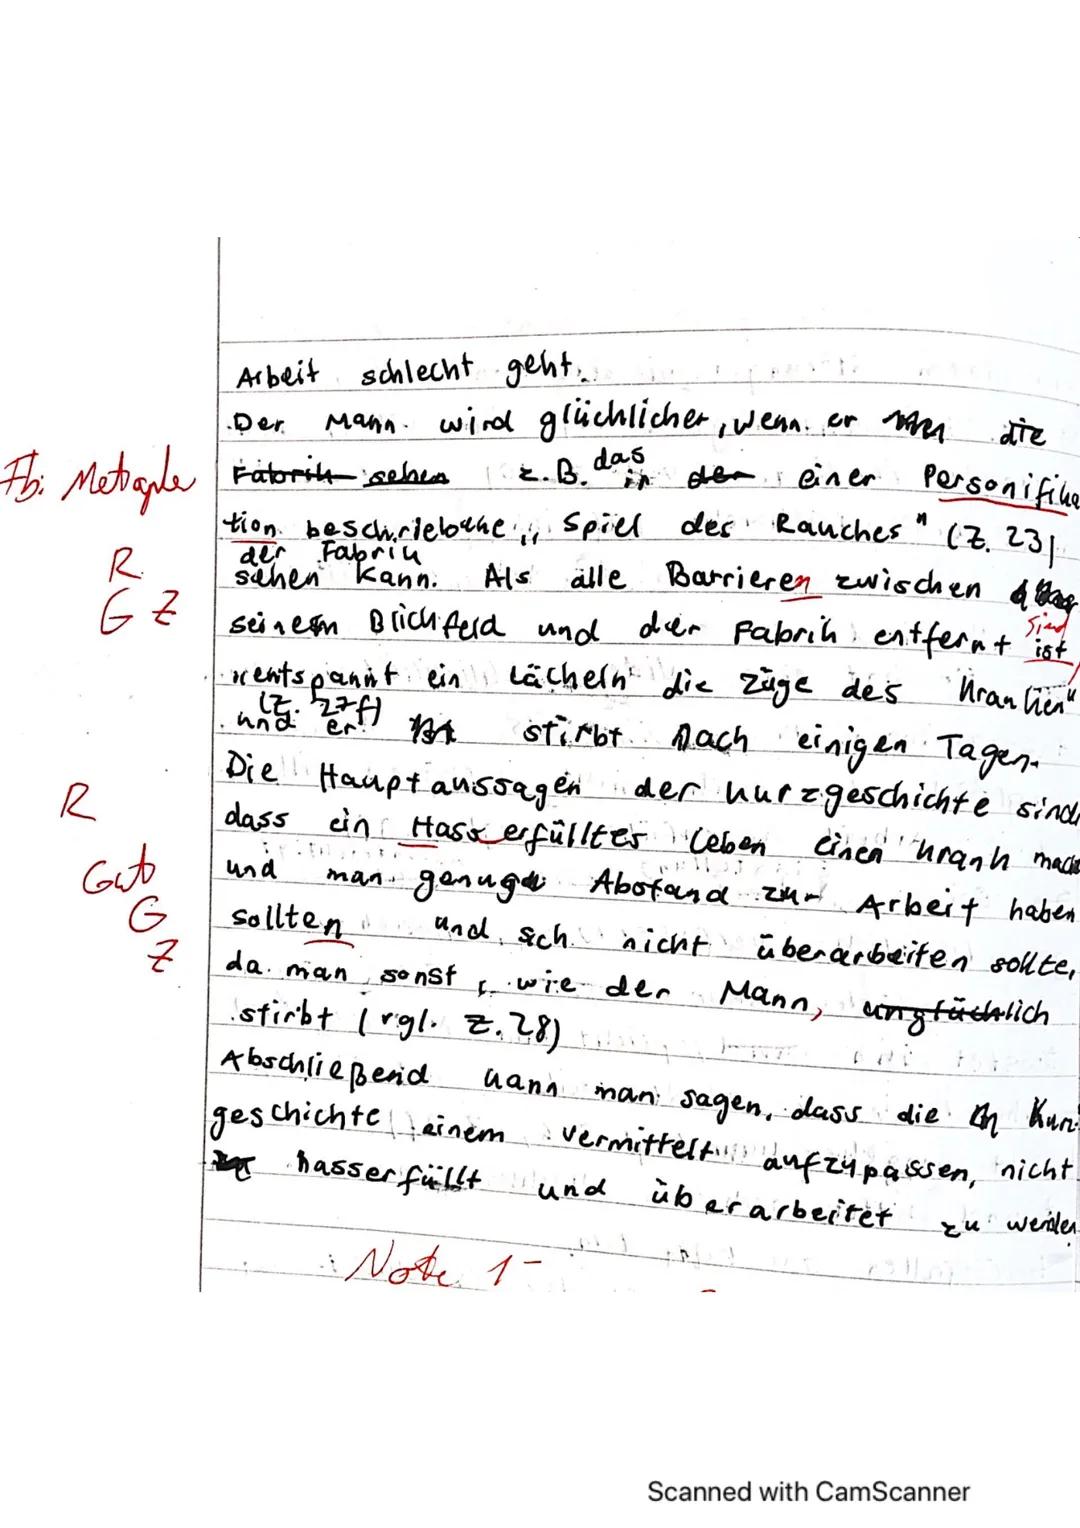 Arbeit schlecht geht.
Der Mann wird glücklicher, wenn er die
Fb: Metapher Fabrik sehen z.B. das in der einer Personifika
tion beschriebene „Spiel des Rauches" (Z. 23)
der Fabrik
R sehen kann. Als alle Barrieren zwischen
G Z seinem Blickfeld und der Fabrik entfernt ist sind
„entspannt ein Lächeln die Züge des Kranken"
(Z. 27f)
und er stirbt nach einigen Tagen.
Die Hauptaussagen der Kurzgeschichte sind,
R dass ein Hass erfülltes Leben einen krank mach
Gut und man genug Abstand zur Arbeit haben
G sollten und sich nicht überarbeiten sollte,
Z da man sonst, wie der Mann, unglücklich
stirbt (vgl. Z. 28)
Abschließend kann man sagen, dass die Kurz
geschichte einem vermittelt aufzupassen, nicht
hasserfüllt und überarbeitet zu werden
Note 1-
Scanned with CamScanner